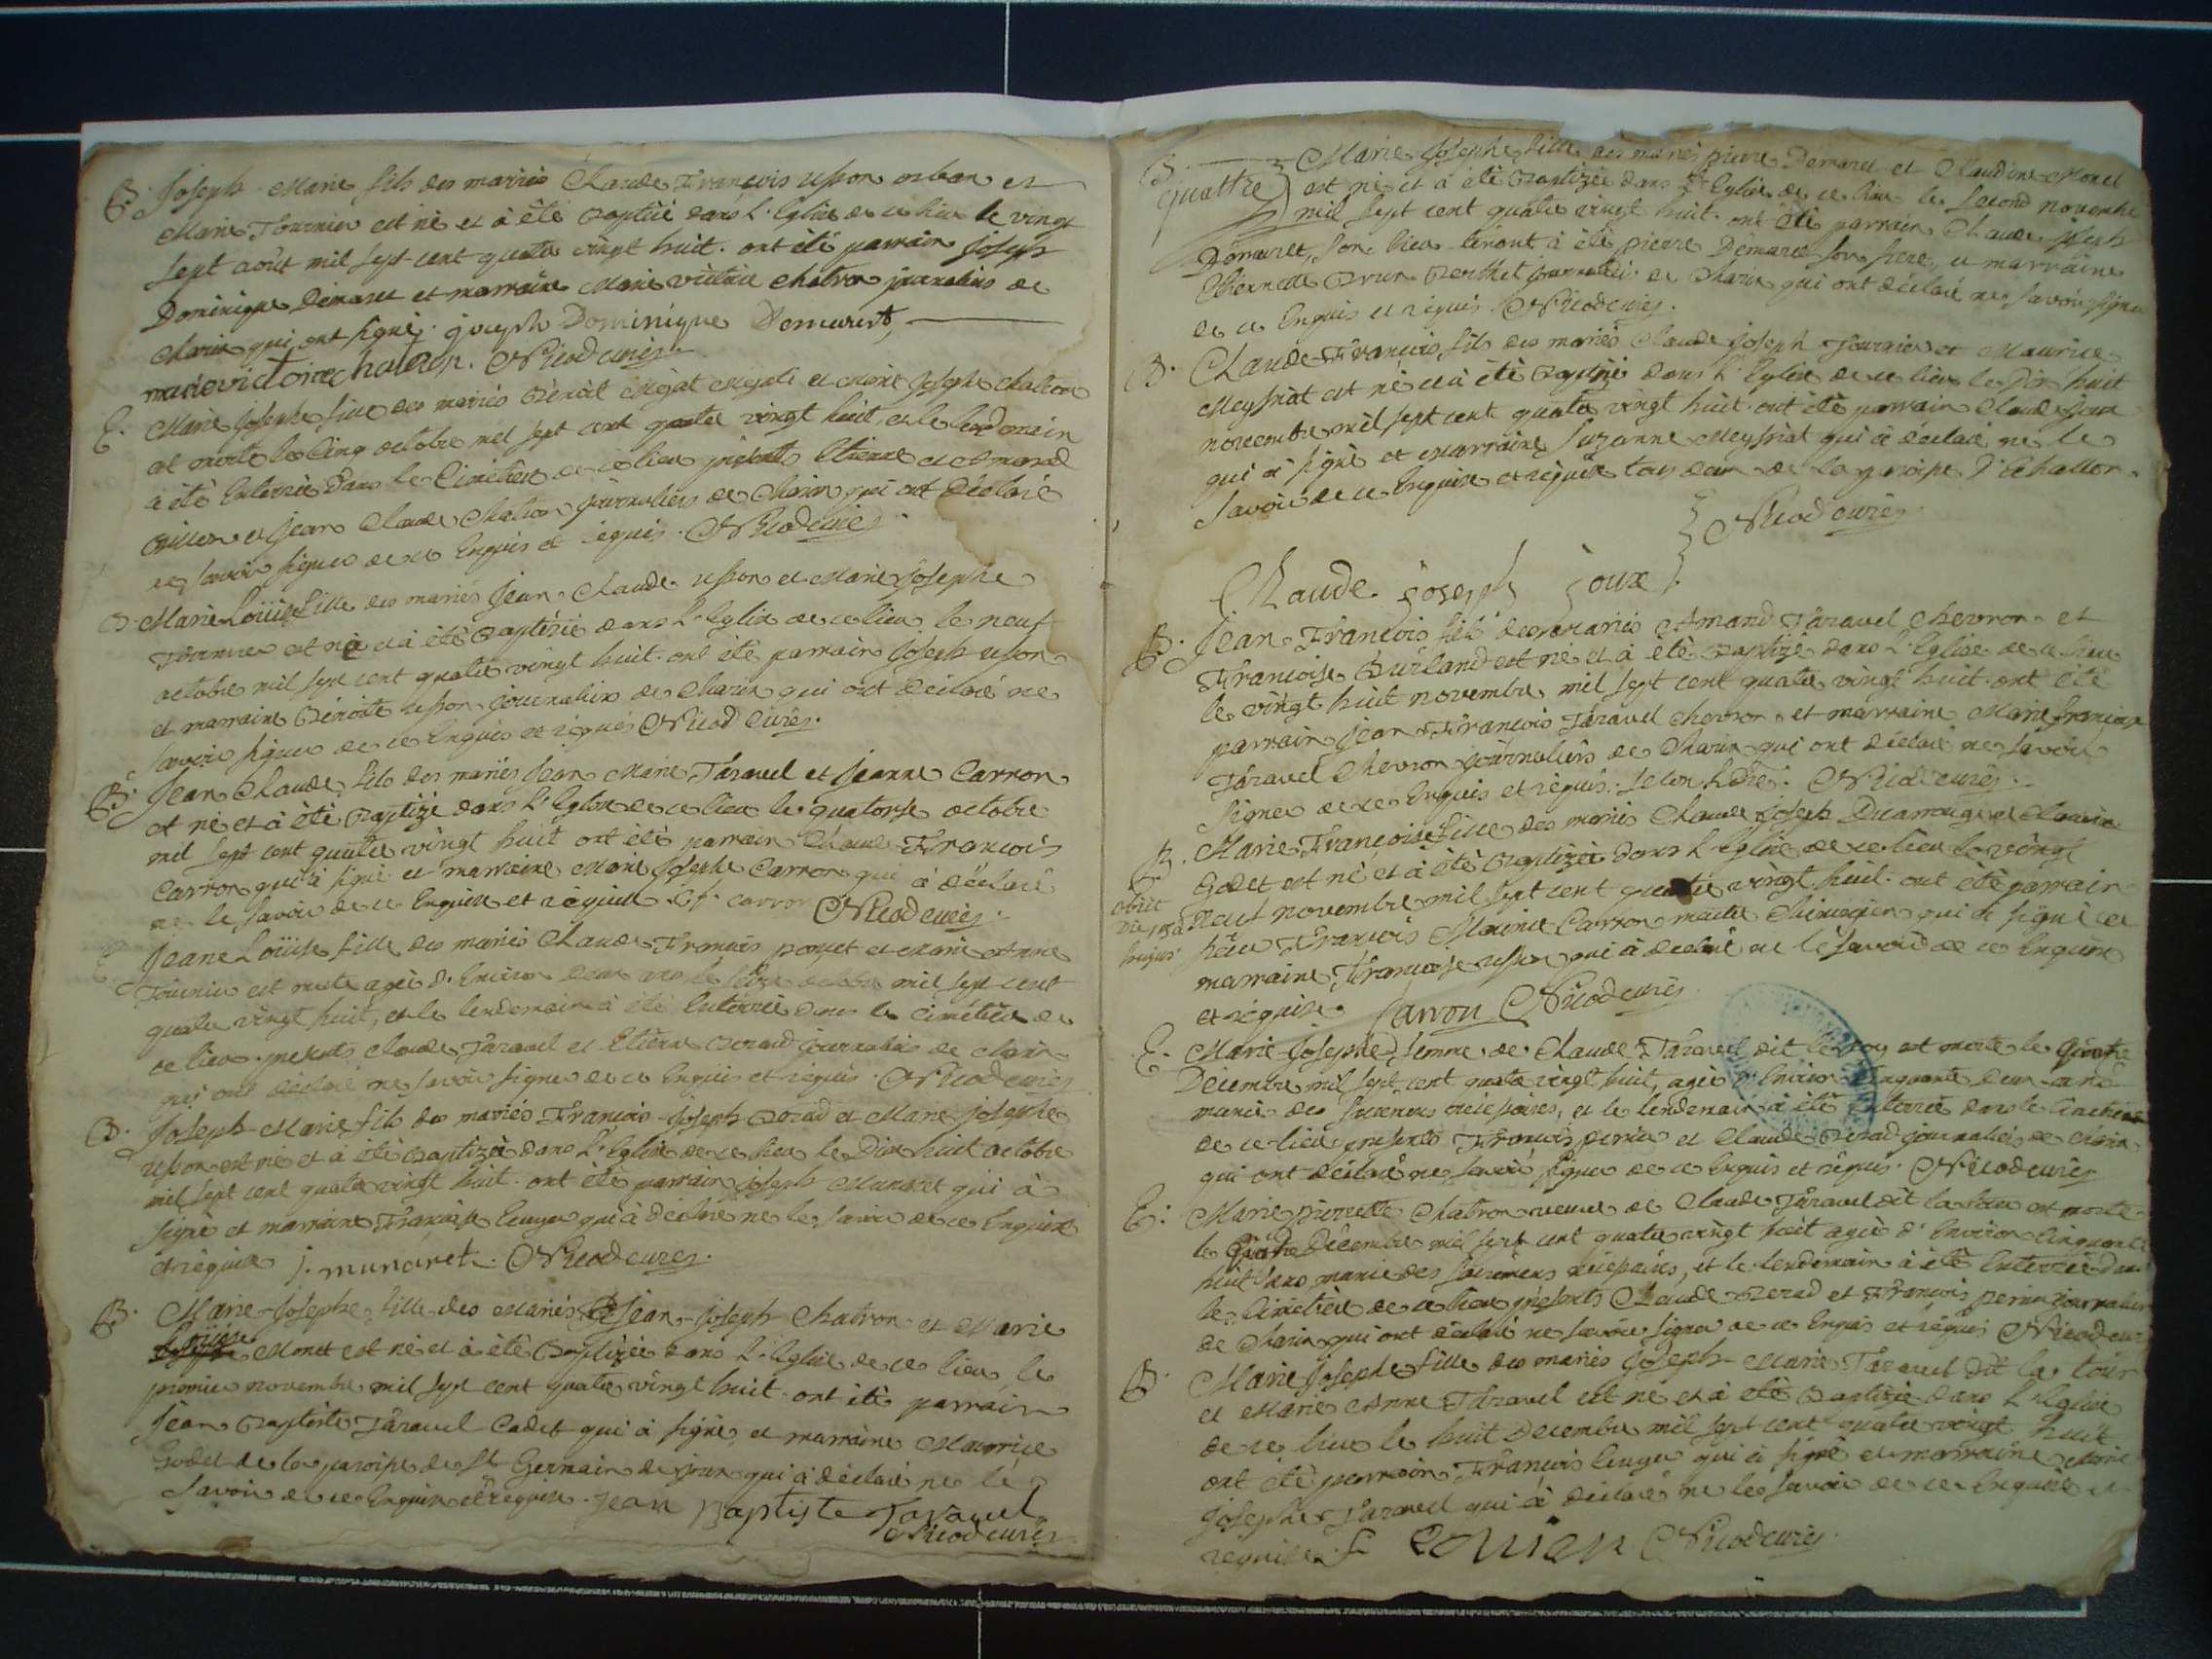 B. Joseph Marie fils des mariés Claude François usson orban et
Marie Tournier est né et à été baptisé dans l'Eglise de ce lieu le vingt
sept août mil sept cent quatre vingt huit. ont été parrain Joseph
Dominique Demaret et marraine Marie victoire chatron journaliers de
Charix qui ont signé. joseph Dominique Demurest,
marie victoire chatron. Nicod curé.
E. Marie Josephe fille des mariés Benoit et Marie Josephe chatron
est morte le cinq octobre mil sept cent quatre vingt huit, et le lendemain
a été Enterrée dans le Cimetiere de ce lieu présents Etienne
et Jean Claude Chatron journaliers de Charix qui ont déclaré
ne savoir signer de ce Enquis et réquis. Nicod curé
B. Marie Louise fille des mariés Jean Claude usson et Marie Josephe
Tournier est née et à été Baptizée dans L'Eglise de ce lieu le neuf
octobre mil sept cent quatre vingt huit. ont été parrain Joseph usson
et marraine Benoite usson journaliers de Charix qui ont déclaré ne
savoir signer de ce Enquis et réquis Nicod curé.
B. Jean Claude fils des mariés Jean Marie Táravel et Jeanne Carron
est né et à été Baptizé dans L'Eglise de ce lieu le quatorse octobre
mil sept cent quatre vingt huit ont été parrain Claude François
Carron qui à signé et marraine Marie Josephe Carron qui à déclaré
ne le savoir de ce Enquise et réquise. C f. carron Nicod curé.
E. Jeane Loüise fille des mariés Claude François ponçet et Marie Anne
Tournier est morte agée d'Environ deux ans le seize octobre mil sept cent
quatre vingt huit, et le lendemain à été Enterrée dans le cimétière de
ce lieu. presents Claude Táravel et Etienne Berad journaliers de Charix
qui ont déclaré ne savoir signer de ce Enquis et réquis. Nicod curé
B. Joseph Marie fils des mariés François-Joseph Berad et Marie josephe
usson est né et à été Baptizé dans L'Eglise de ce lieu le Dix huit octobre
mil sept cent quatre vingt huit. ont été parrain joseph Munaret qui à
signé et marraine Françoise Euvger qui à déclaré ne le savoir de ce Enquise
et réquise j. munaret. Nicod curé.
B. Marie-Josephe fille des Mariés Jean-Joseph Chatron et Marie
Loüise Monet est née et à été Baptizée dans L'Eglise de ce lieu le
premier novembre mil sept cent quatre vingt huit. ont été parrain
Jean Baptiste Táravel Cadet qui à signé, et marraine Maurice
Godet de la paroisse de St Germain de joux qui à déclaré ne le
savoir de ce Enquise et requise. Jean Baptiste Taravel
Nicod curé
B. quattre Marie Josephe fille des mariés pierre Demaret et Claudine Monet
est née et à été Baptizée dans L'Eglise de ce lieu le second novembre
mil sept cent quatre vingt huit. ont été parrain Claude Joseph
Demaret, son lieu tenant à été pierre Demaret son frere, et marraine
Etiennette Berthet journaliers de Charix qui ont déclaré ne savoir signer
de ce Enquis et réquis. Nicod curé.
B. Claude-François fils des mariés Claude Joseph Tournier et Maurice
Meyssiat est né et à été Baptisé dans L'Eglise de ce lieu le Dix huit
novembre mil sept cent quatre vingt huit. ont été parrain Claude joseph joux
qui à signé et Marraine Suzanne Meyssiat qui à déclaré ne le
savoir de ce Enquise et réquise tous deux de la paroisse D'Echallon.
Nicod curé
Claude joseph joux
B. Jean-François fils des mariés Amand Táravel chevron et
Françoise Burland est né et à été Baptizé dans L'Eglise de ce lieu
le vingt huit novembre mil sept cent quatre vingt huit. ont été
parrain jean François Táravel chevron et marraine Marie françoise
Táravel Chevron journaliers de Charix qui ont déclaré ne savoir
signer de ce Enquis et réquis. Selon L'ord.e. Nicod curé.
B. Marie Françoise fille des mariés Claude Joseph Ducarrouge et Maurice
Godet est née et à été Baptizée dans L'Eglise de ce lieu le vingt
obiit
neuf novembre mil sept cent quatre vingt huit. ont été parrain
hujus
François Marie Carron maitre Chirurgien qui à signé et
marraine Françoise usson qui à déclaré ne le savoir de ce Enquise
et réquise. Carron Nicod curé
E. Marie-Josephe, femme de Claude Táravel dit est morte le Quatre
Décembre mil sept cent quatre vingt huit, agée d'Environ cinquante deux ans
munie des sacremens nécéssaires, et le lendemain à été Enterrée dans le cimetiere
de ce lieu, presents François pernier et Claude Berad journaliers de Charix
qui ont déclaré ne savoir signer de ce Enquis et réquis. Nicod curé
E. Marie pierrette Chatron veuve de Claude Táravel dit est morte
le Quatre Décembre mil sept cent quatre vingt huit agée d'Environ Cinquante
huit ans munie des sacremens nécéssaires, et le lendemain à été Enterrée dans
le cimétière de ce lieu présents Claude Berad et François pernier journaliers
de Charix qui ont déclaré ne savoir signer de ce Enquis et réquis Nicod curé
B. Marie Josephe fille des mariés Joseph-Marie Táravel dit la tour
et Marie Anne Táravel est née et à été Baptizée dans L'Eglise
de ce lieu le huit Decembre mil sept cent quatre vingt huit
ont été parrain François Euvger qui à signé et marraine Marie
Josephe Táravel qui à déclaré ne le savoir de ce Enquise et
requise. Nicod curé.